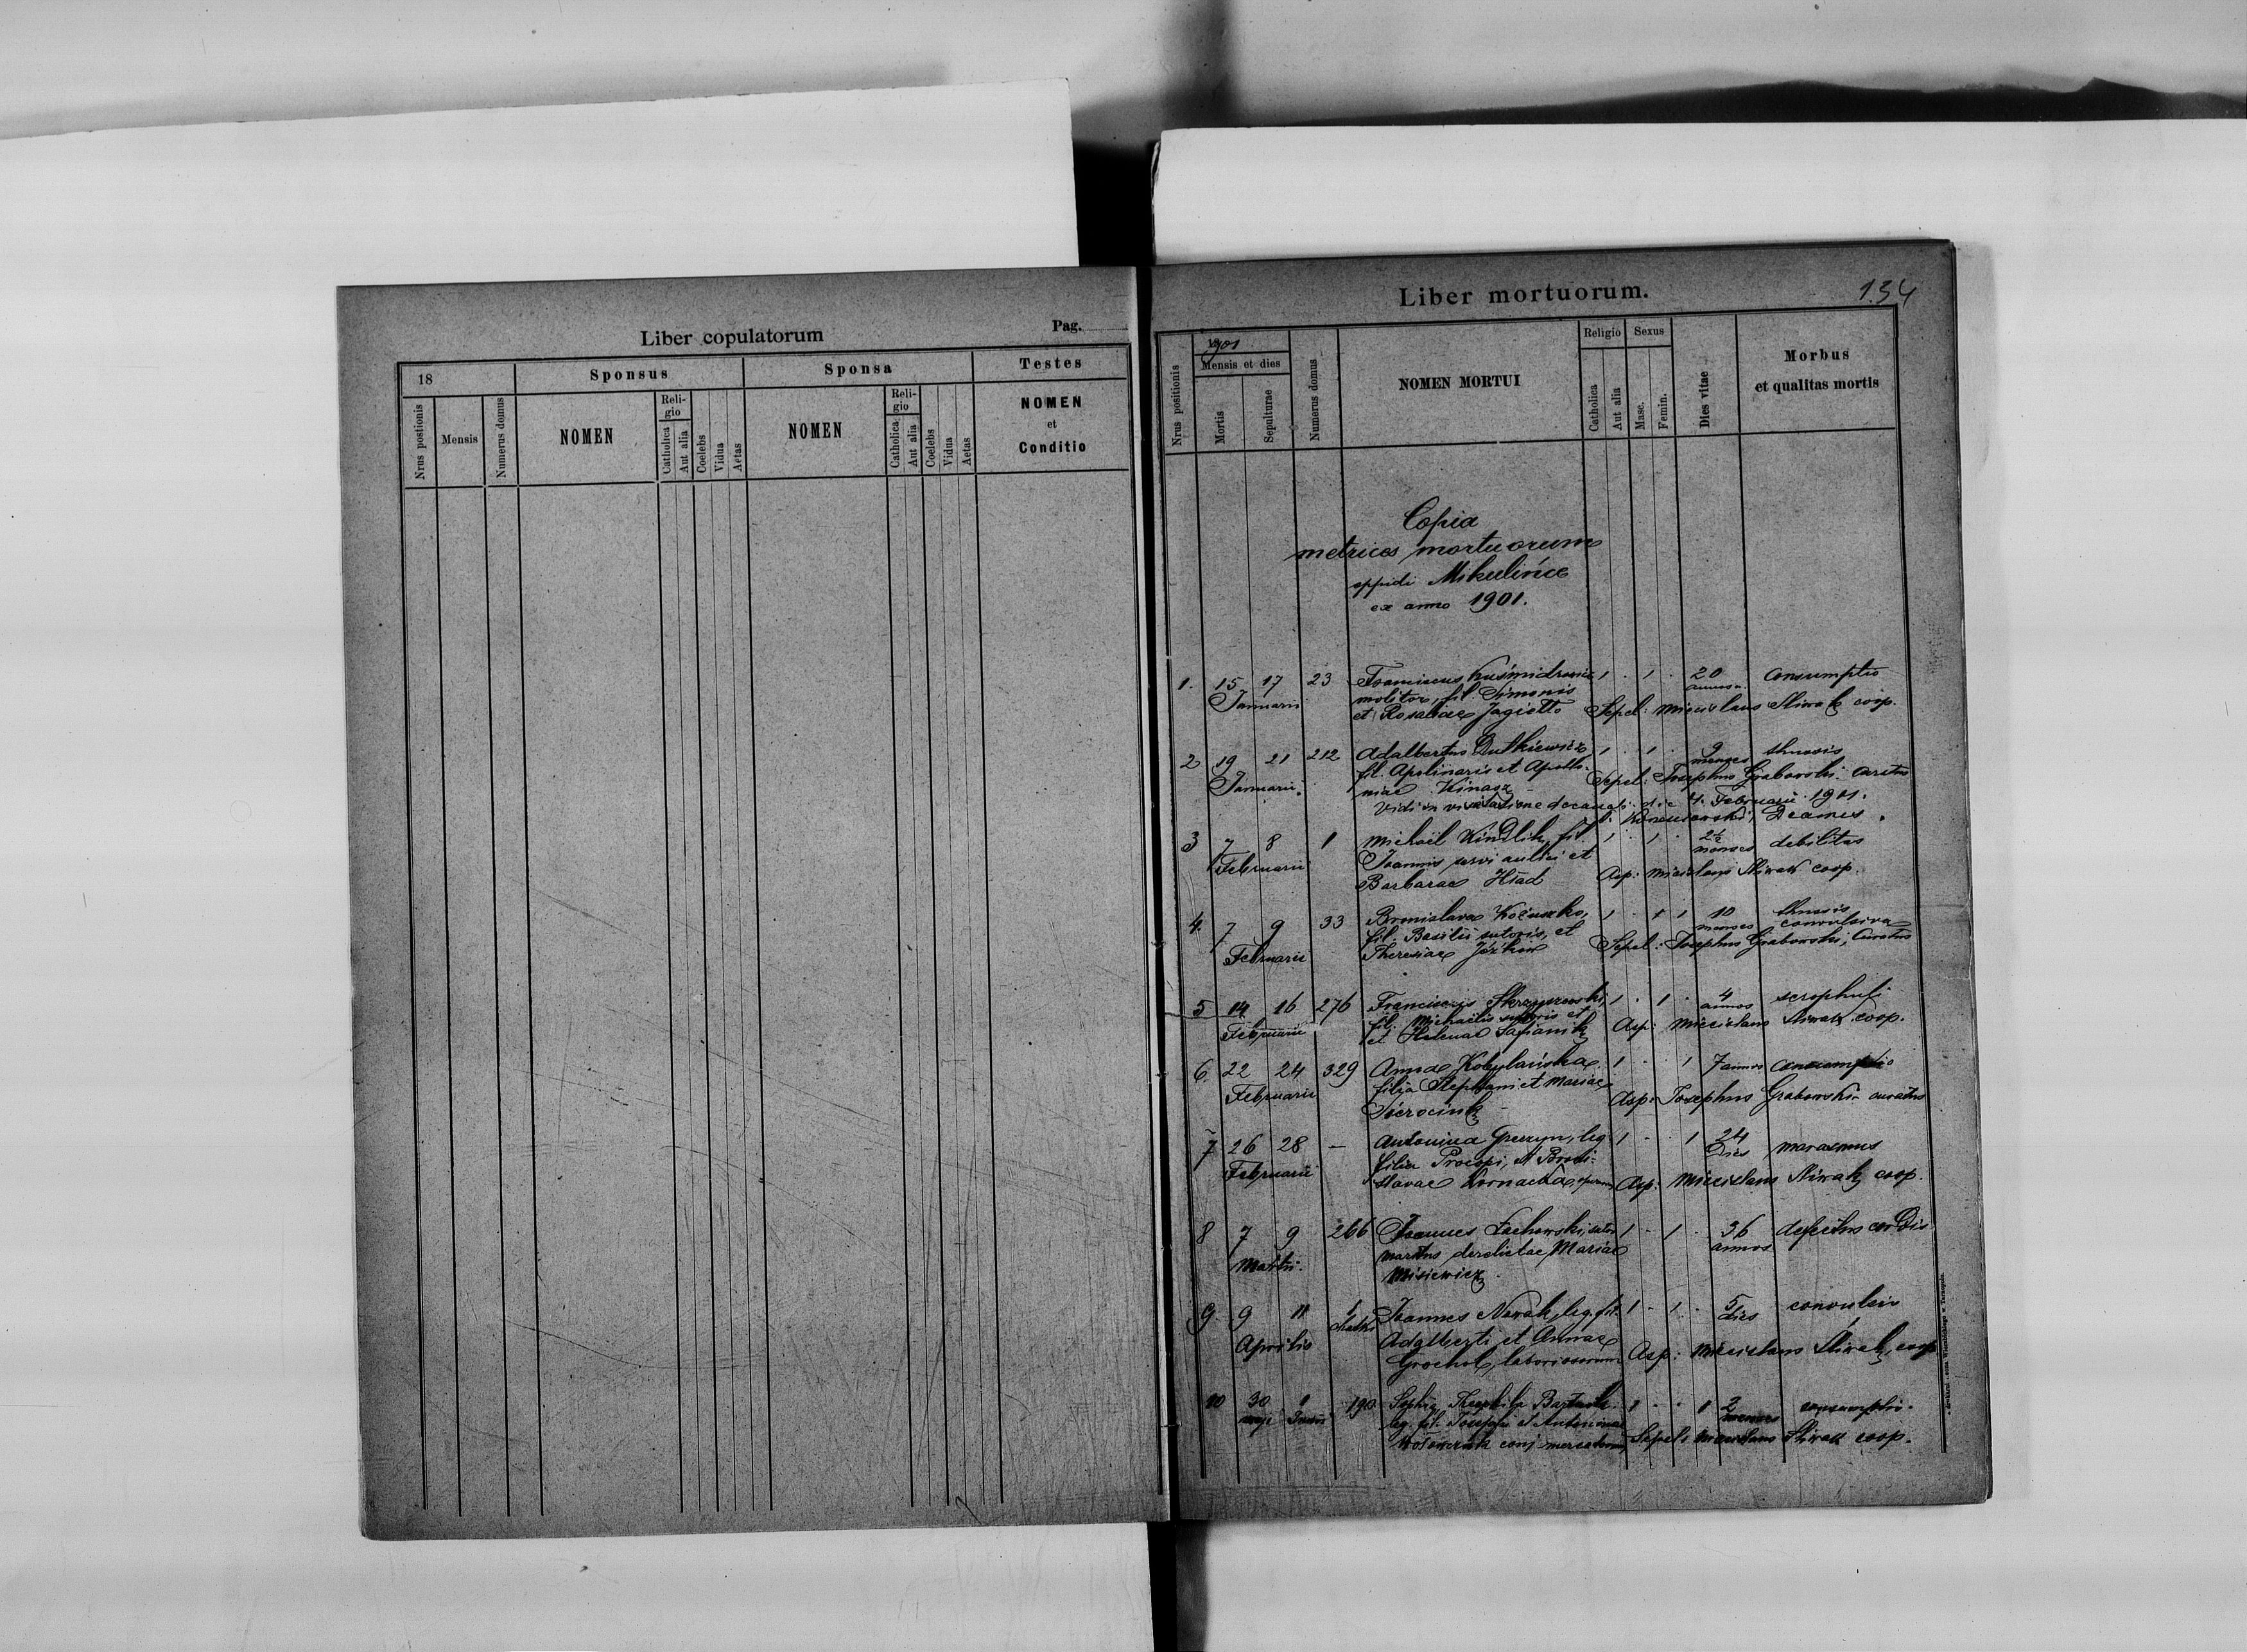 Liber copulatorum
Pag.
18
Sponsus
Sponsa
Testes
Nrus postionis
Mensis
Numerus domus
NOMEN
Religio
Catholica
Aut alia
Coelebs
Vidua
Aetas
NOMEN
Religio
Catholica
Aut alia
Coelebs
Vidua
Aetas
NOMEN
et
Conditio
Liber mortuorum.
134
Nrus positionis
1901
Mensis et dies
Mortis
Sepulturae
Numerus domus
NOMEN MORTUI
Religio
Catholica
Aut alia
Sexus
Masc.
Femin.
Dies vitae
Morbus
et qualitas mortis
Copia
metrices mortuorum
oppidi Mikulińce
ex anno 1901.
1. 15 17 23 1 . 1 . 20 consumptio
Januarii molitor, fil. Simonis annos
et Rosaliae Jagiełło Sepel: Miecislaus Śliwak coop.
2 19 21 212 Adalbertus Dutkiewicz 1 . 1 . 9 menses
Januarii fil. Apolinaris et Apollo- Sepel: Josephus Grabowski curatus
niae Kinasz
Vidi in visitatione decanali die 4. Februarii 1901.
Decanus
3 7 8 1 Michaël Kindlik, fil. 1 . 1 . 2½ menses debilitas
Februarii Joannis servi aulici et
Barbarae Hład Asp: Miecislaus Śliwak coop.
4. 7 9 33 Bronislava 1 . 1 1 10 menses
Februarii fil. Basilii sutoris, et convulsiva
Theresiae Sepel: Josephus Grabowski, Curatus
5 14 16 276 Franciscus 1 . 1 . 4 annos scrophuli
Februarii fil. Michaëlis sutoris et
et Helenae Asp: Miecislaus Śliwak coop.
6. 22 24 329 Anna Kobylańska 1 . 1 7 annos consumptio
Februarii filia Stephani et Mariae
Asp: Josephus Grabowski curatus
7 26 28 — Antonina leg. 1 . . 1 24 Dies marasmus
Februarii filia Procopi, et Broni-
slavae Asp: Miecislaus Śliwak coop.
8 7 9 266 Joannes sutor 1 - 1 . 36 annos defectus cordis
Martii. maritus derelictae Mariae
Misiewicz
9. 9 11 1 Joannes Novak, leg. fil. 1 - 1 . 5 dies convulsio
Aprilis Adalberti et Annae
Grochol, laboriosorum Asp: Miecislaus Śliwak, coop
10 30 1 190 Sophia Theophila 1 . . 1 2 menses consumptio.
leg. fil. Josephi et Antoninae
conj. mercatorum Sepel: Miecislaus Śliwak coop.